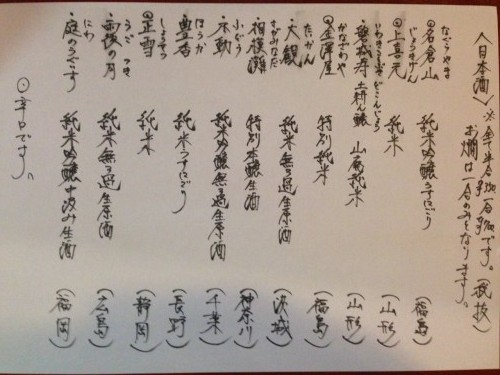 〈日本酒〉※全半合 一合 です。(税抜)
お燗は一合のみとなります。
なぐらやま
◉名倉山 純米吟醸うすにごり (福島)
じょうきげん
◉上喜元 純米 (山形)
いわきことぶき どこんじょう
◉磐城寿 土耕ん醸 山廃純米 (山形)
かなざわや
◉金澤屋 特別純米 (福島)
たいかん
・大観 純米無ろ過生原酒 (茨城)
さがみなだ
・相模灘 特別本醸生酒 (神奈川)
ふどう
・不動 純米吟醸無ろ過生原酒 (千葉)
ほうか
・豊香 純米うすにごり (長野)
しょうせつ
◉正雪 純米 (静岡)
うごのつき
・雨後の月 純米無ろ過生原酒 (広島)
にわ
・庭のうぐいす 純米吟醸中汲み生酒 (福岡)
◉辛口です。